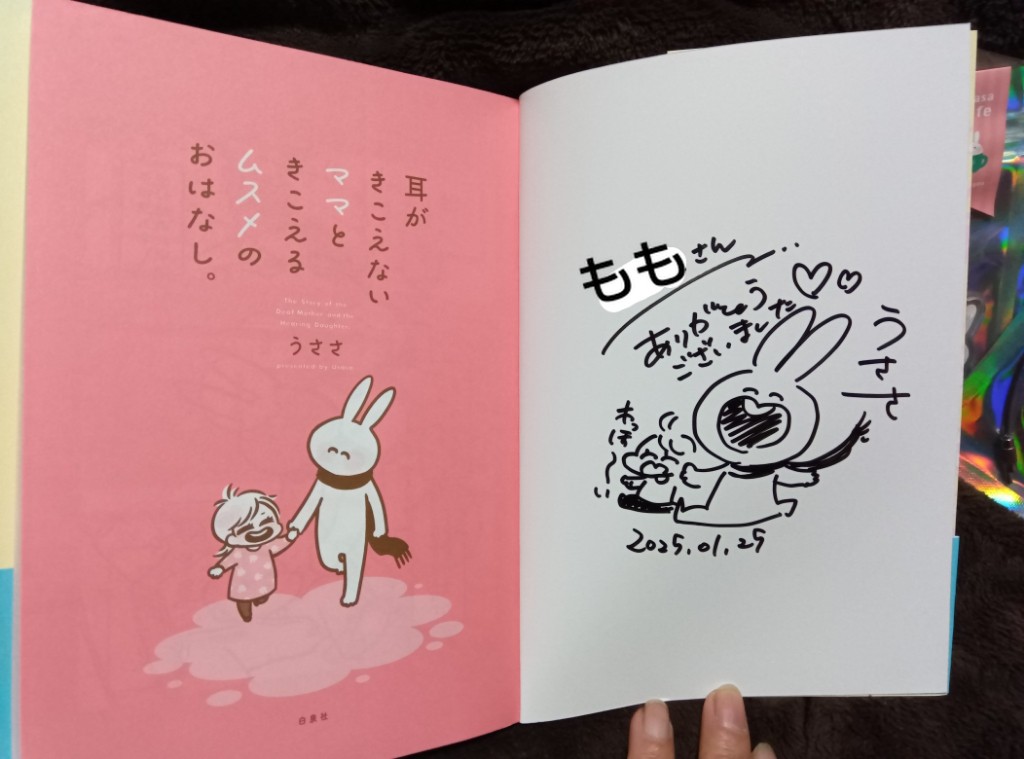 耳が
きこえない
ママと
きこえる
ムスメの
おはなし。
The Story of the
Deaf Mother and the
Hearing Daughter
うささ
presented by Usasa
白泉社
ももさん
ありがとう
ございました
うささ
わっほーい
2025.01.25